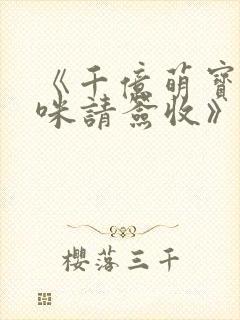 《千億萌寶
咪請簽收》
櫻落三千